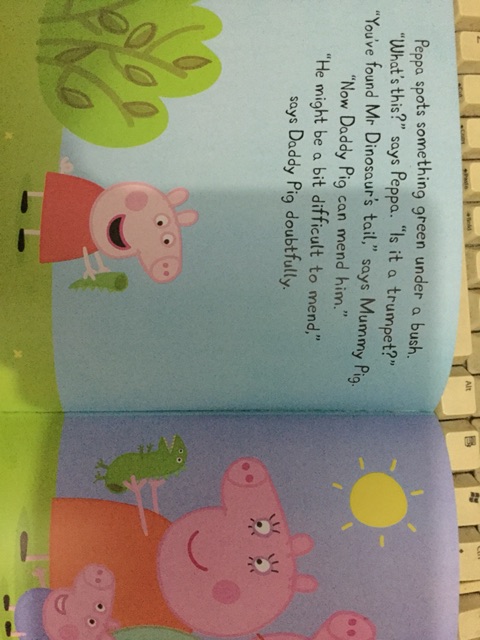 Peppa spots something green under a bush.
"What's this?" says Peppa. "Is it a trumpet?"
"You've found Mr Dinosaur's tail," says Mummy Pig.
"Now Daddy Pig can mend him."
"He might be a bit difficult to mend,"
says Daddy Pig doubtfully.
Alt